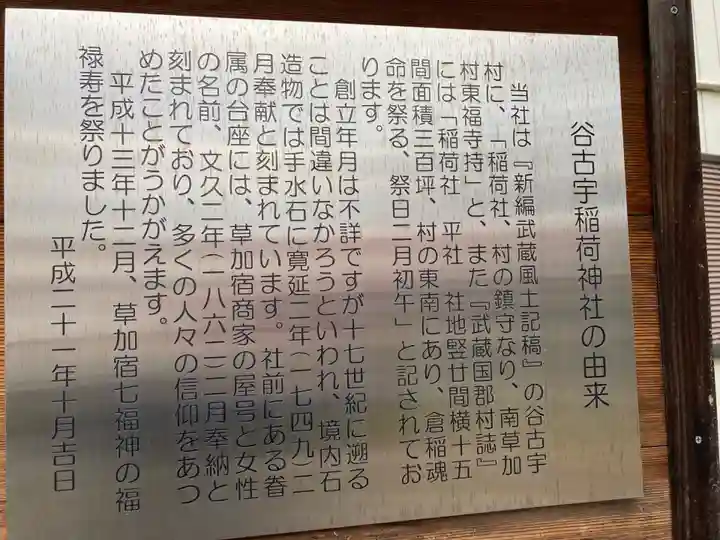 谷古宇稲荷神社の由来
当社は『新編武蔵風土記稿』の谷古宇
村に、「稲荷社、村の鎮守なり、南草加
村東福寺持」と、また『武蔵国郡村誌』
には「稲荷社　平社　社地竪廿間横十五
間面積三百坪、村の東南にあり、倉稲魂
命を祭る、祭日二月初午」と記されてお
ります。
創立年月は不詳ですが十七世紀に遡る
ことは間違いなかろうといわれ、境内石
造物では手水石に寛延二年(一七四九)二
月奉献と刻まれています。社前にある眷
属の台座には、草加宿商家の屋号と女性
の名前、文久二年(一八六二)二月奉納と
刻まれており、多くの人々の信仰をあつ
めたことがうかがえます。
平成十三年十二月、草加宿七福神の福
禄寿を祭りました。
平成二十一年十月吉日